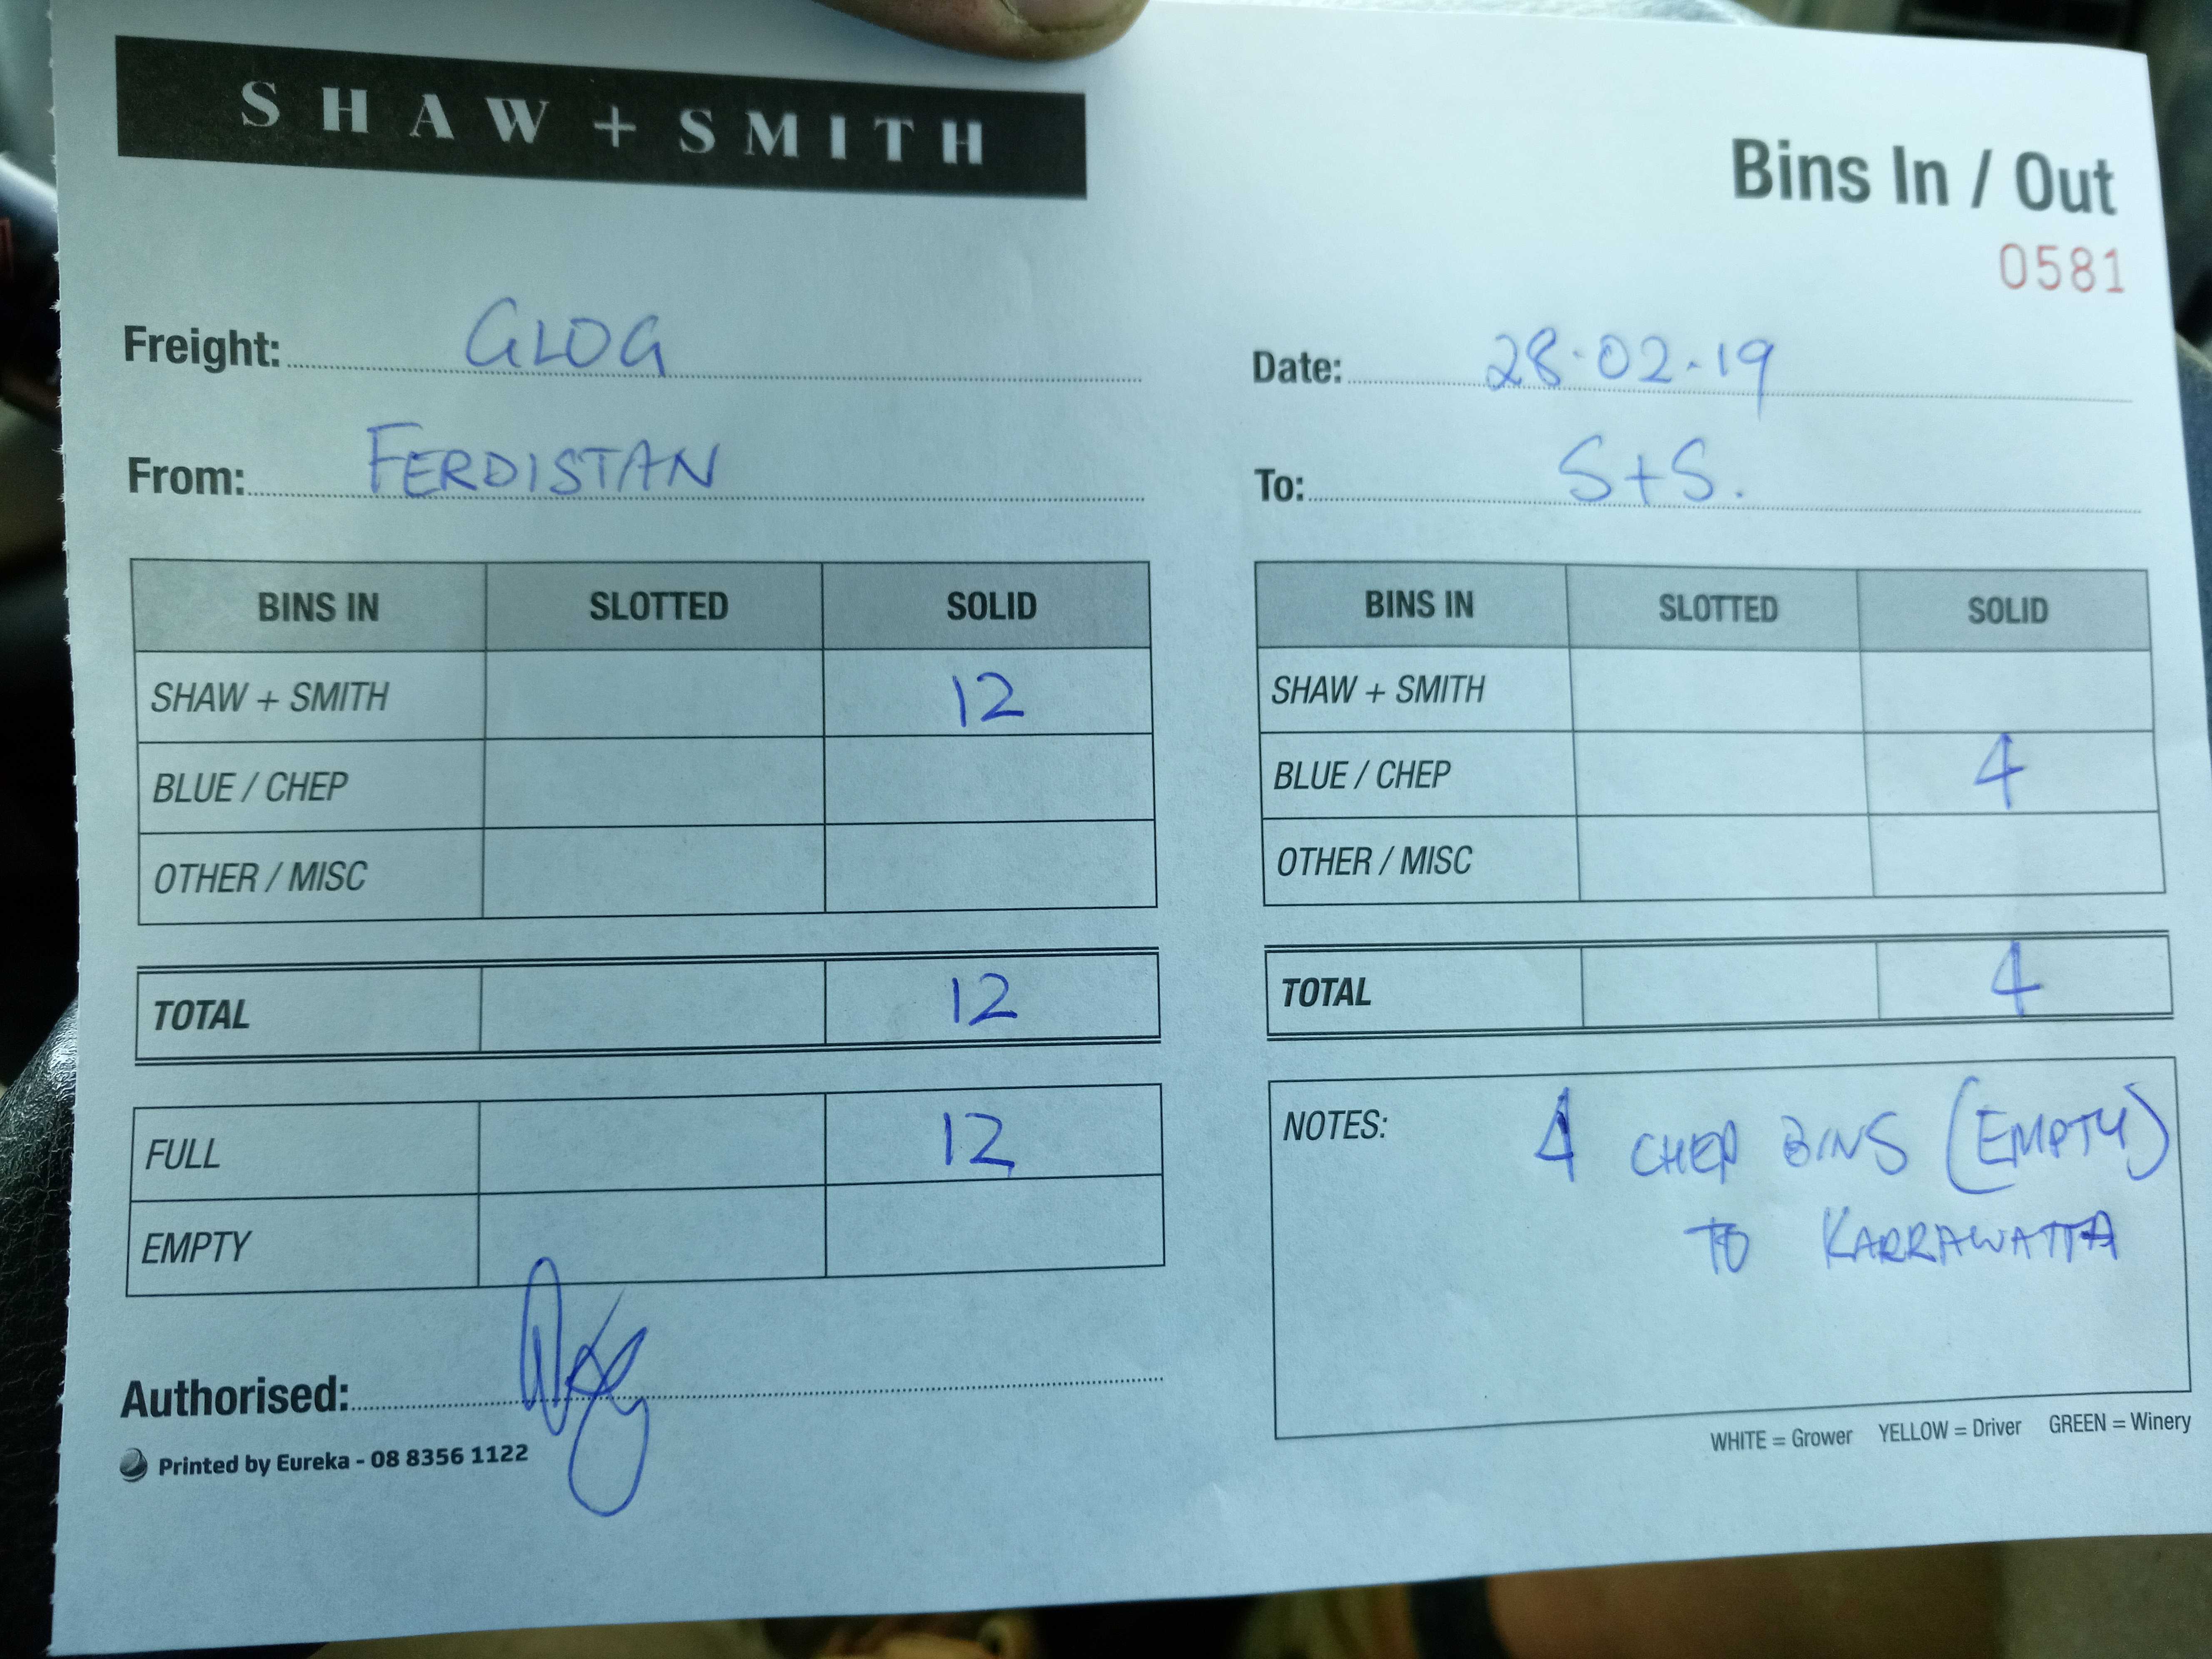 SHAW + SMITH
Bins In / Out
0581
Freight: GLOG
Date: 28.02.19
From: FERDISTAN
To: S+S.
BINS IN SLOTTED SOLID
SHAW + SMITH 12
BLUE / CHEP
OTHER / MISC
TOTAL 12
FULL 12
EMPTY
Authorised:
Printed by Eureka - 08 8356 1122
BINS IN SLOTTED SOLID
SHAW + SMITH
BLUE / CHEP 4
OTHER / MISC
TOTAL 4
NOTES: 4 CHEP BINS (EMPTY)
TO KARRAWATTA
WHITE = Grower YELLOW = Driver GREEN = Winery